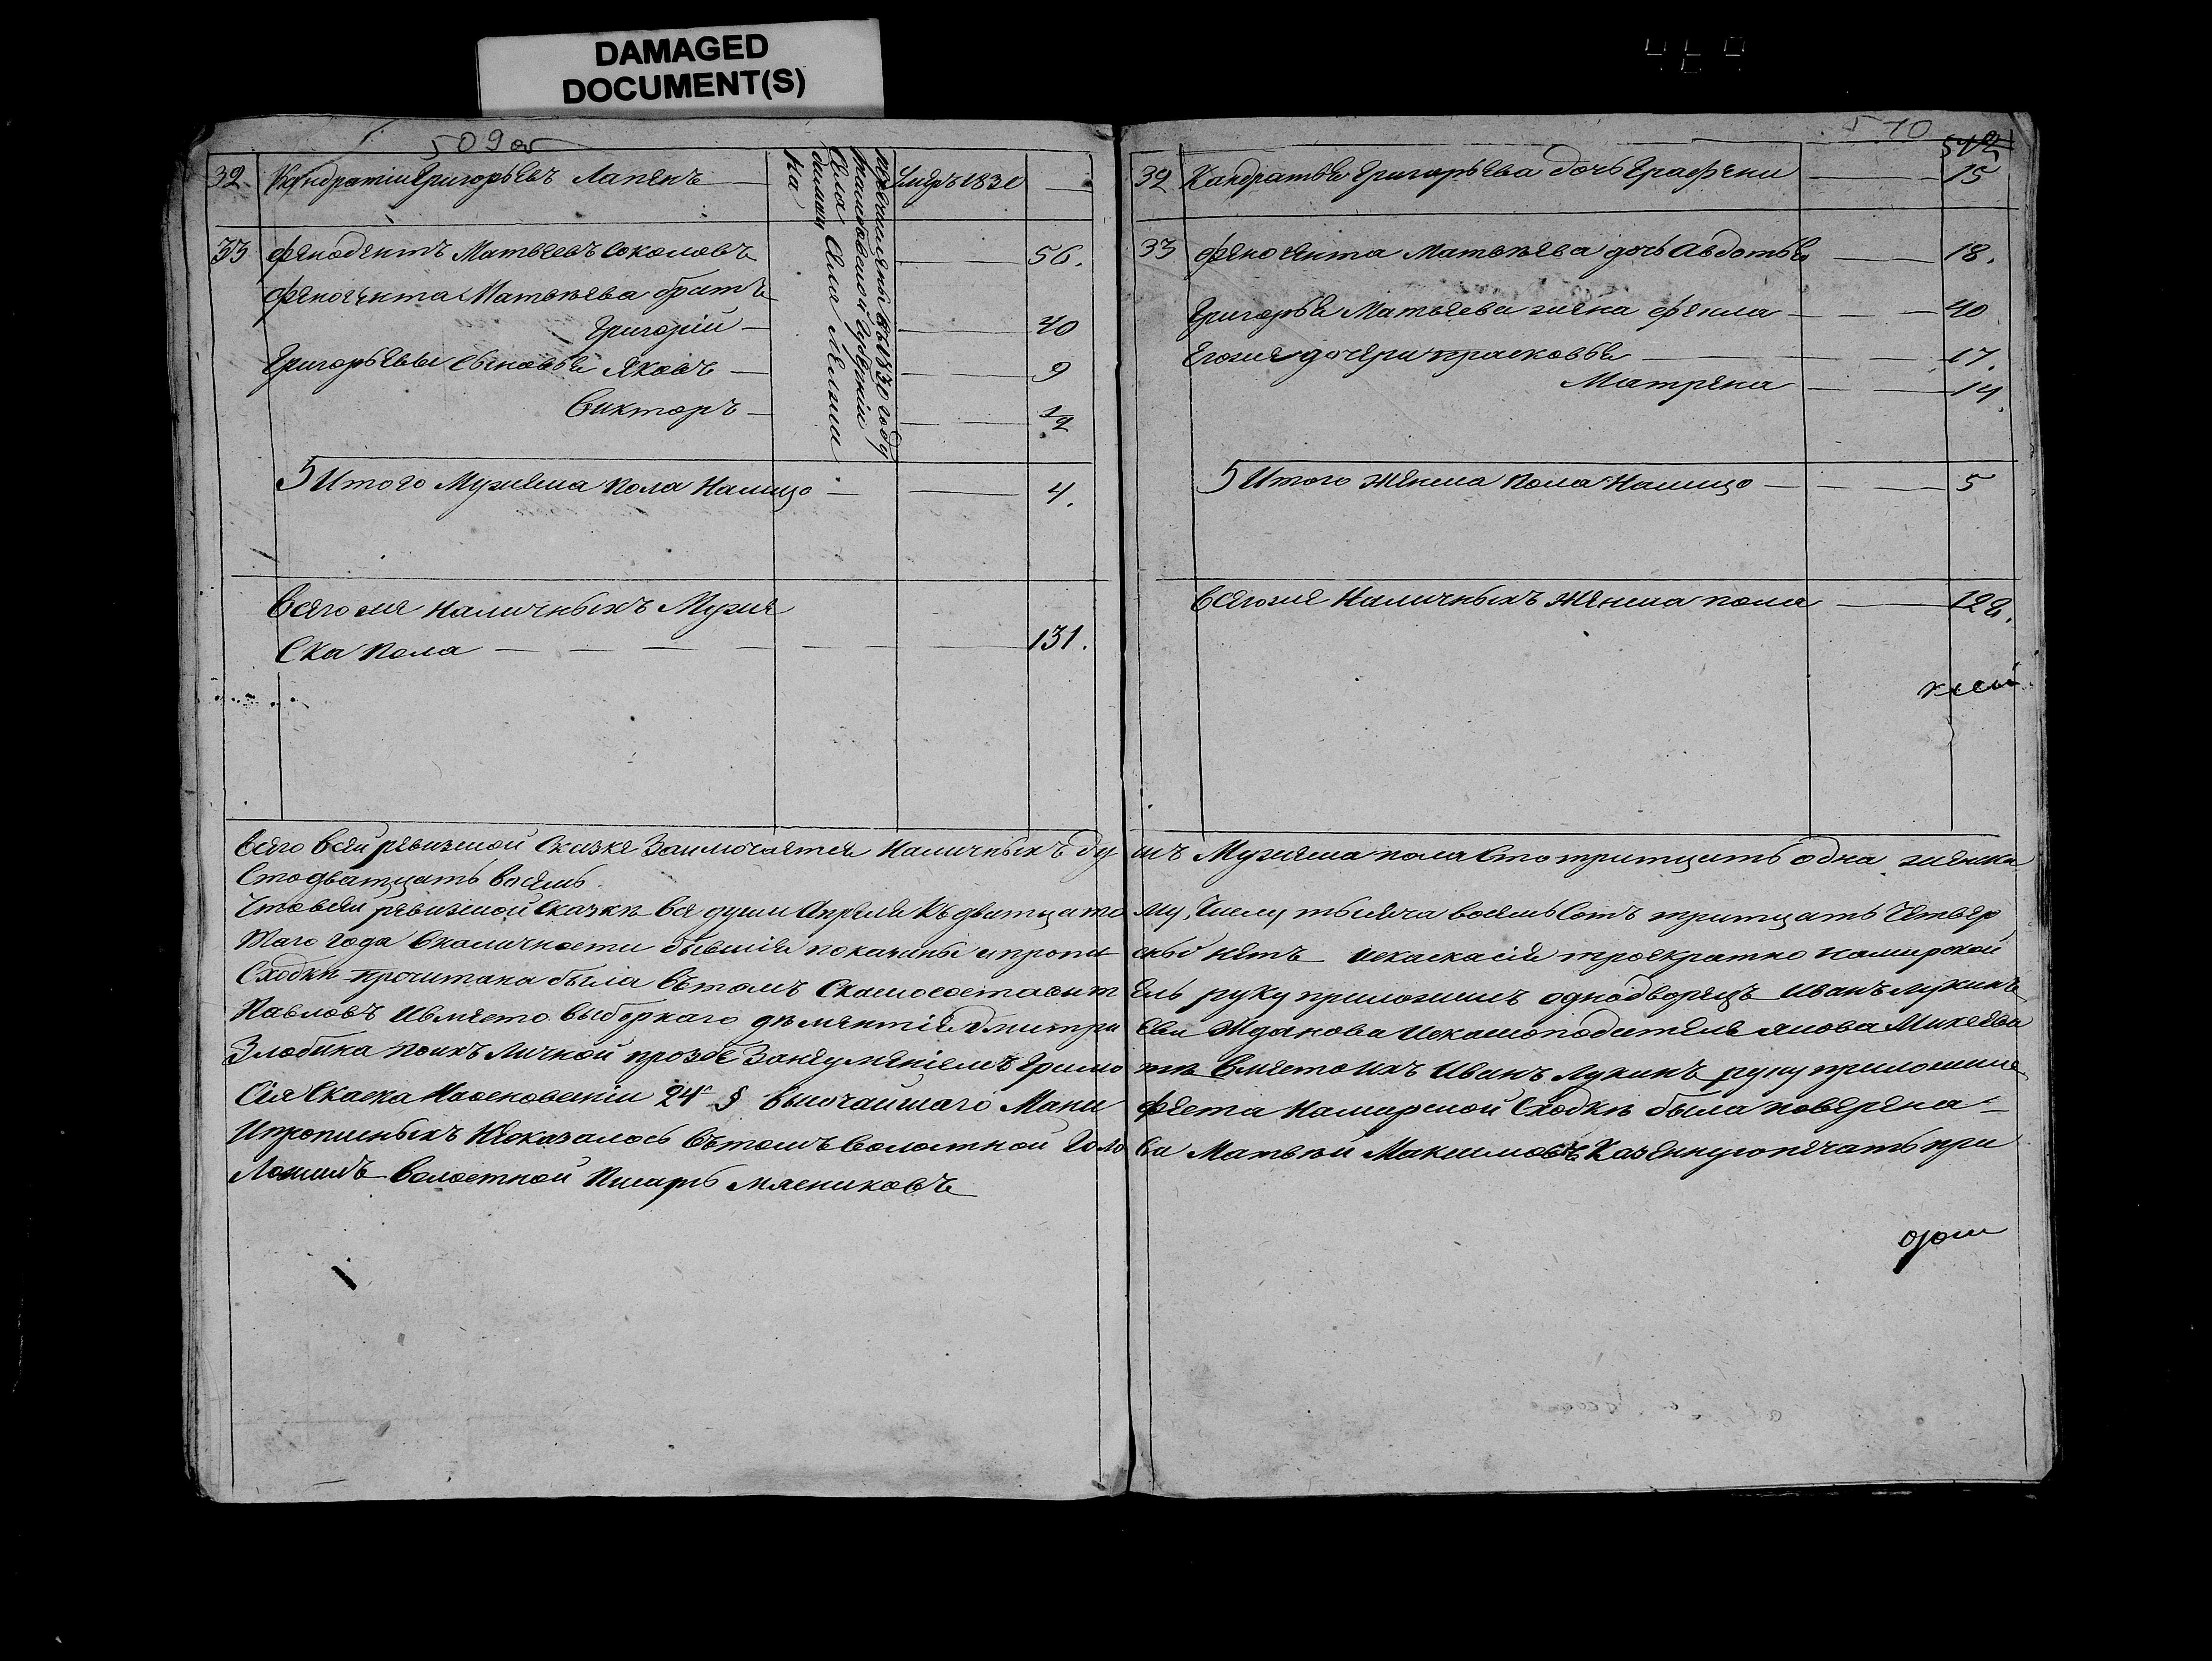 DAMAGED
DOCUMENT(S)
509 об
32. Кондратій Григорьевъ Лапенъ
Умеръ 1831
33 Фенодентъ Матвеевъ Соколовъ 56.
Феногента Матвѣева братъ
Григорій 40
Григорьевы сыновья Яковъ 9
Викторъ 1/2
переселены въ 1830 году
Тамбовской Губерніи
5 Итого Мужеска пола Налицо 4.
Всегоже наличныхъ Муже
ска пола 131.
510
32 Кандратья Григорьева дочь Графени 15
33 Феногента Матвѣева дочь Авдотья 18.
Григорья Матвева жена Фекла 40
Егоже дочери прасковья 17.
Матрена 14.
5 Итого Женска пола Налицо 5
Всегоже Наличныхъ Женска пола 128.
Всего всей ревизской Сказке Заключается Наличныхъ ду шъ Мужеска пола Сто тритцать одна женска
Стодватцать восемь
Что всей ревизской Сказкѣ все души Апреля Къ дватцато му, Числу тысяча восемь Сотъ тритцать Четвер
таго года вналичности бывшія показаны и пропи скы нетъ Искаска сія троекратно намирской
Сходкѣ прочитана была вътомъ Скаско состави т ель руку приложилъ однодворецъ Иванъ Лукинъ
Павловъ Ивместо выборнаго дементія Дмитри ева Жданова Искаскоподателя якова Микеева
Злобина поихъ личной прозбе Занеуменіемъ Грамо тѣ вместо ихъ Иванъ Лукинъ руку приложилъ
Сія Скаска Наосновеніи 24 § высочайшаго Мани феста Намирской Сходкѣ была поверена
Ипрописныхъ Неоказалось вътомъ волостной Голо ва Матвѣй Максимовъ Казенную печать при
ложилъ волостной Писарь мясниковъ